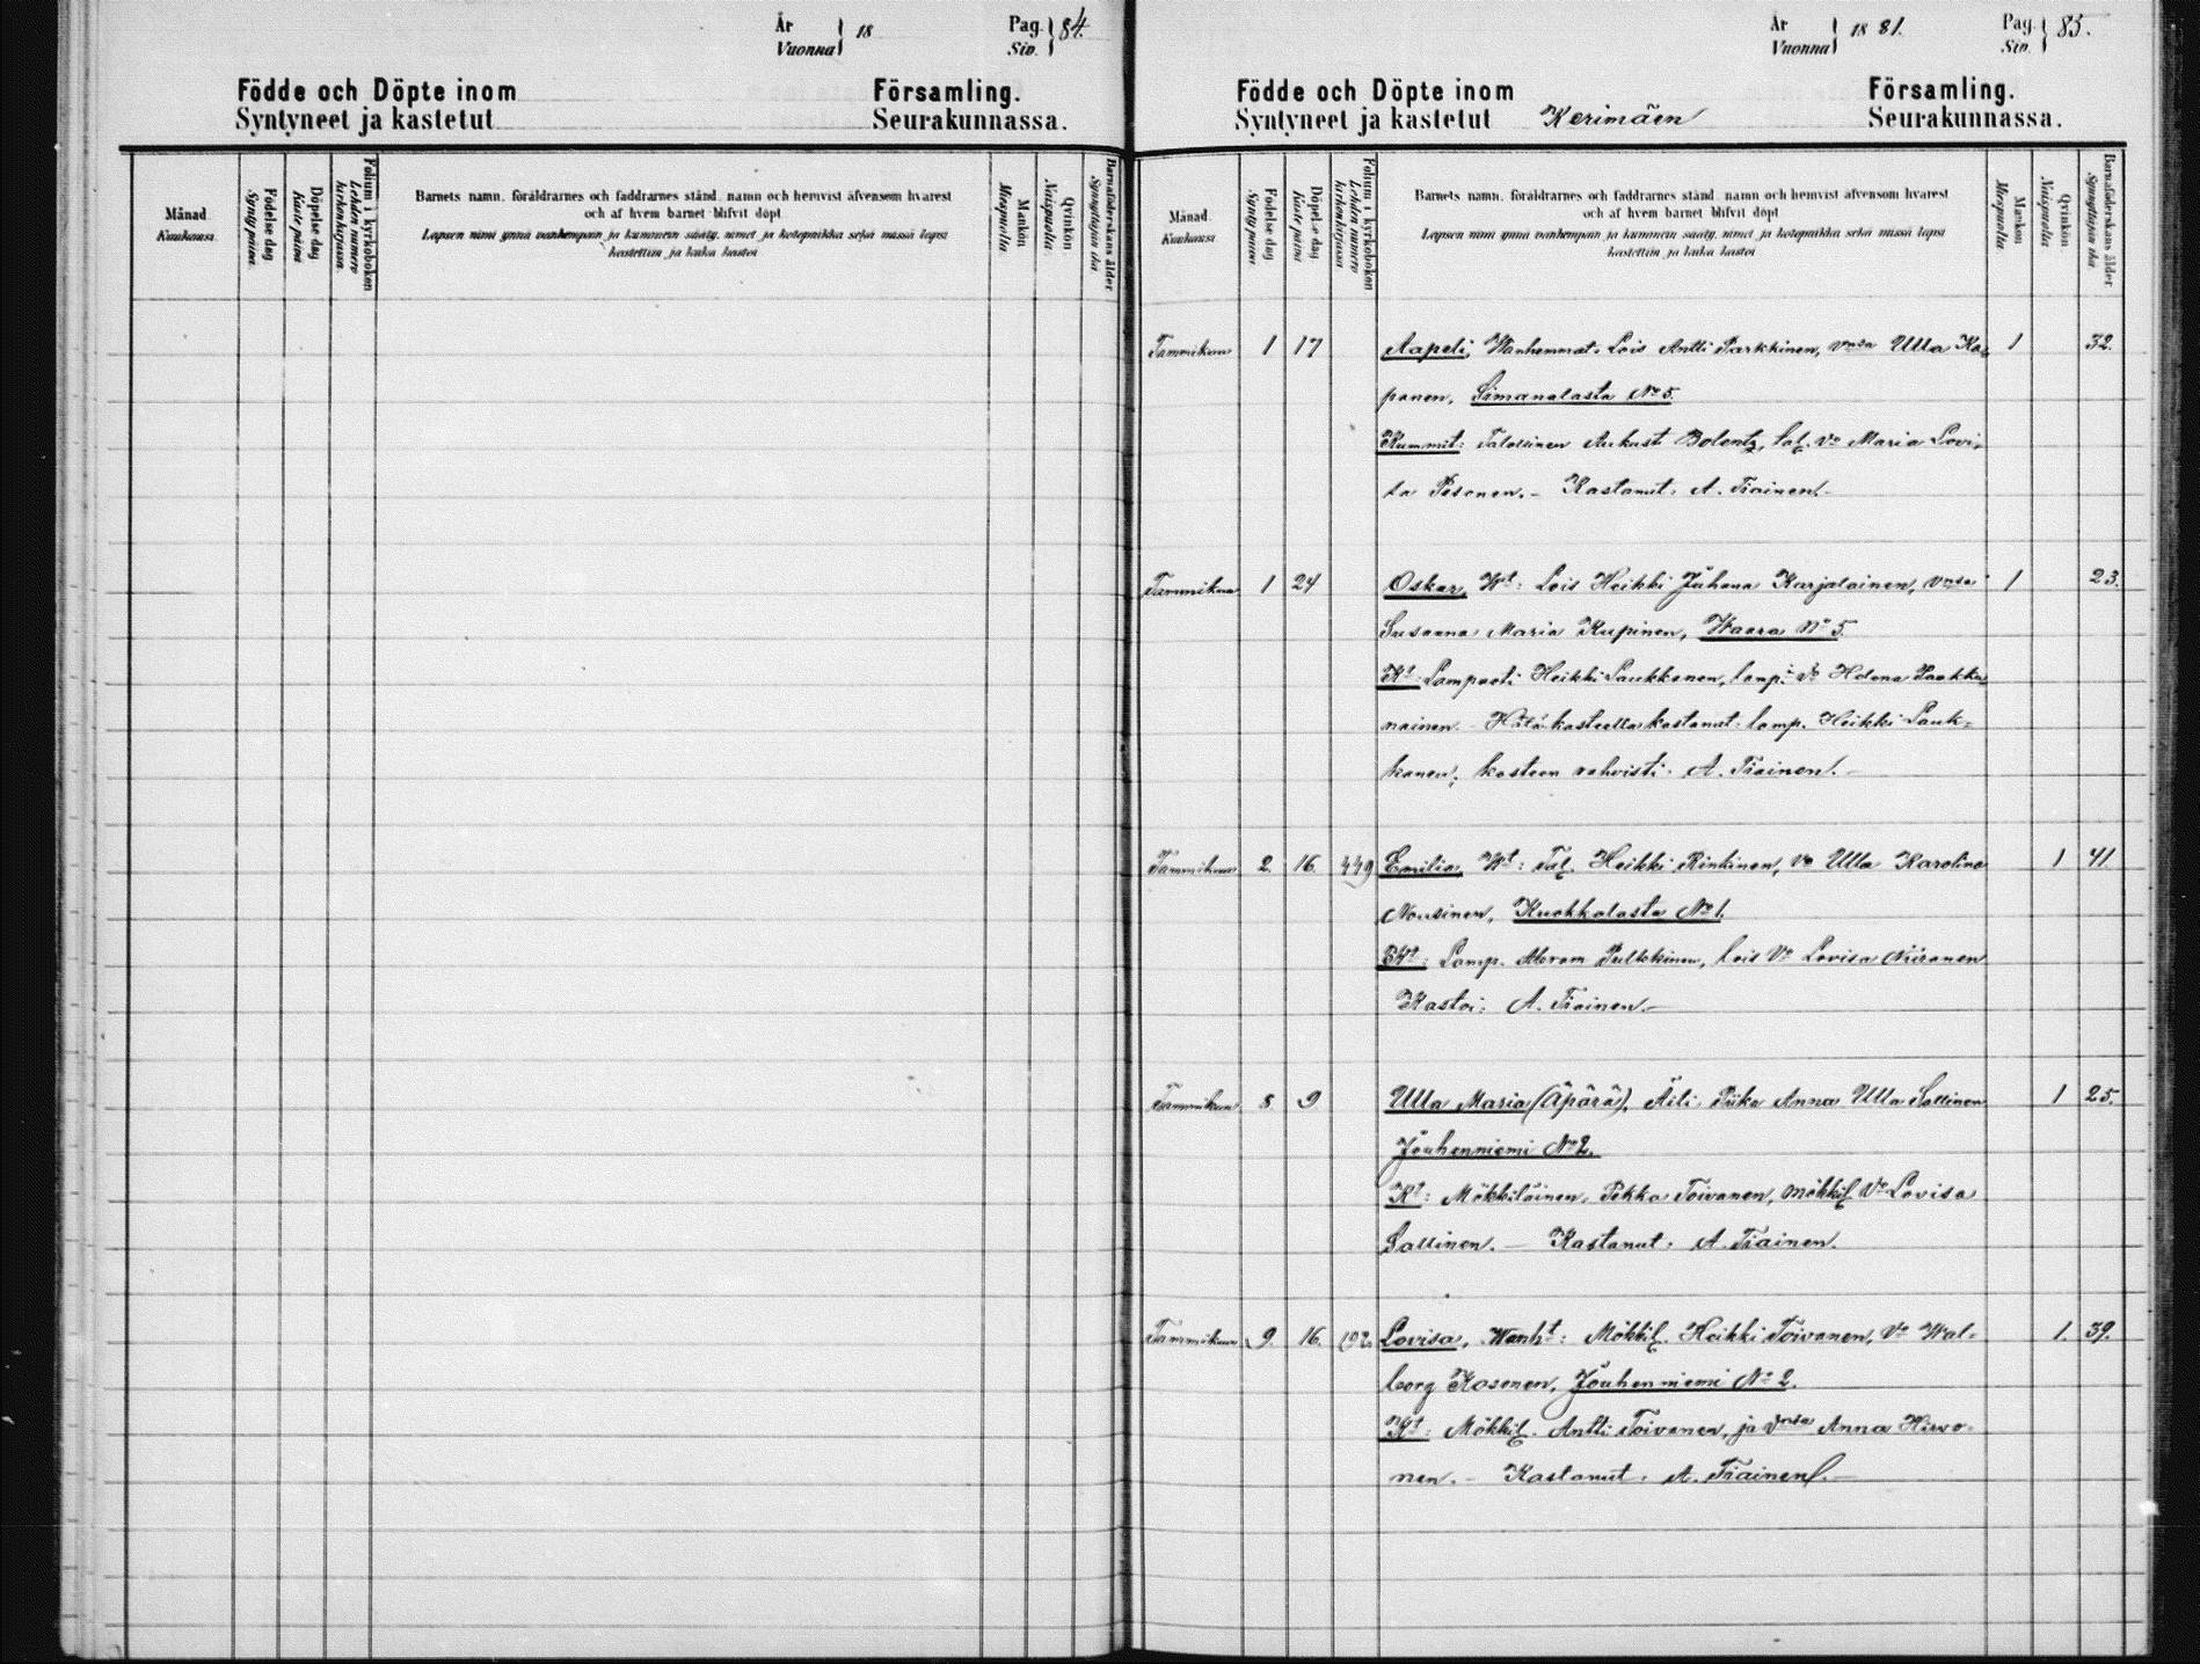 År
Vuonna
18
Pag.
Siv.
84.
Födde och Döpte inom Församling.
Syntyneet ja kastetut Seurakunnassa.
Månad.
Kuukausi.
Födelse dag
Synty päivä.
Döpelse dag
Kaste päivä
Folium i kyrkoboken
Lehden numero
kirkonkirjassa.
Barnets namn, föräldrarnes och faddrarnes stånd, namn och hemvist äfvensom hvarest
och af hvem barnet blifvit döpt
Lapsen nimi ynnä vanhempain ja kummein sääty, nimet ja kotopaikka sekä missä lapsi
kastettiin ja kuka kastoi
Mankön
Miespuolta
Qvinkön
Naispuolta
Barnaföderskans ålder
Synnyttäjän ikä
År
Vuonna
1881.
Pag.
Siv.
85.
Födde och Döpte inom Församling.
Syntyneet ja kastetut Kerimäen Seurakunnassa.
Månad.
Kuukausi
Födelse dag
Synty päivä
Döpelse dag
Kaste päivä
Folium i kyrkoboken
Lehden numero
kirkonkirjassa
Barnets namn, föräldrarnes och faddrarnes stånd, namn och hemvist äfvensom hvarest
och af hvem barnet blifvit döpt
Lapsen nimi ynnä vanhempain ja kummein sääty, nimet ja kotopaikka sekä missä lapsi
kastettiin ja kuka kastoi
Mankön
Miespuolta
Qvinkön
Naispuolta
Barnaföderskans ålder
Synnyttäjän ikä
Tammikuu 1 17 Aapeli, Wanhemmat: Lois Antti Parkkinen, vnsa Ulla Ko- 1 32.
ponen, Simanalasta No 5.
Kummit: Talollinen Aukust Bolentz, tal. vo Maria Lovi-
sa Pesonen. - Kastanut: A. Tiainen. -
Tammikuu 1 24 Oskar, Wt: Lois Heikki Juhana Karjalainen, vnsa 1 23.
Susanna Maria Kupinen, Waara No 5.
Kt: Lampuoti Heikki Laukkanen, lamp: vo Helena Laakku-
nainen. - Hätäkasteella kastanut: lamp. Heikki Lauk-
kanen; kasteen vahvisti: A. Tiainen. -
Tammikuu 2. 16. 449 Emilia, Wt: Tal. Heikki Rinkinen, vo Ulla Karolina 1 41.
Nousinen, Kuokkalasta No 1.
Kt: Lamp. Abram Pulkkinen, lois Vo Lovisa Niiranen
Kastoi: A. Tiainen. -
Tammikuu 8 9 Ulla Maria (Äpärä), Äiti: Piika Anna Ulla Sallinen 1 25.
Jouhenniemi No 2.
Kt: Mökkiläinen Pekka Toivanen, mökkil. Vo Lovisa
Sallinen. - Kastanut: A. Tiainen.
Tammikuu 9. 16. 192. Lovisa, Wanht: Mökkil. Heikki Toivanen, Vo Wal- 1. 39.
borg Kosonen, Jouhenniemi No 2.
Kt: Mökkil. Antti Toivanen, ja Vnsa Anna Hirvo-
nen. - Kastanut: A. Tiainen. -